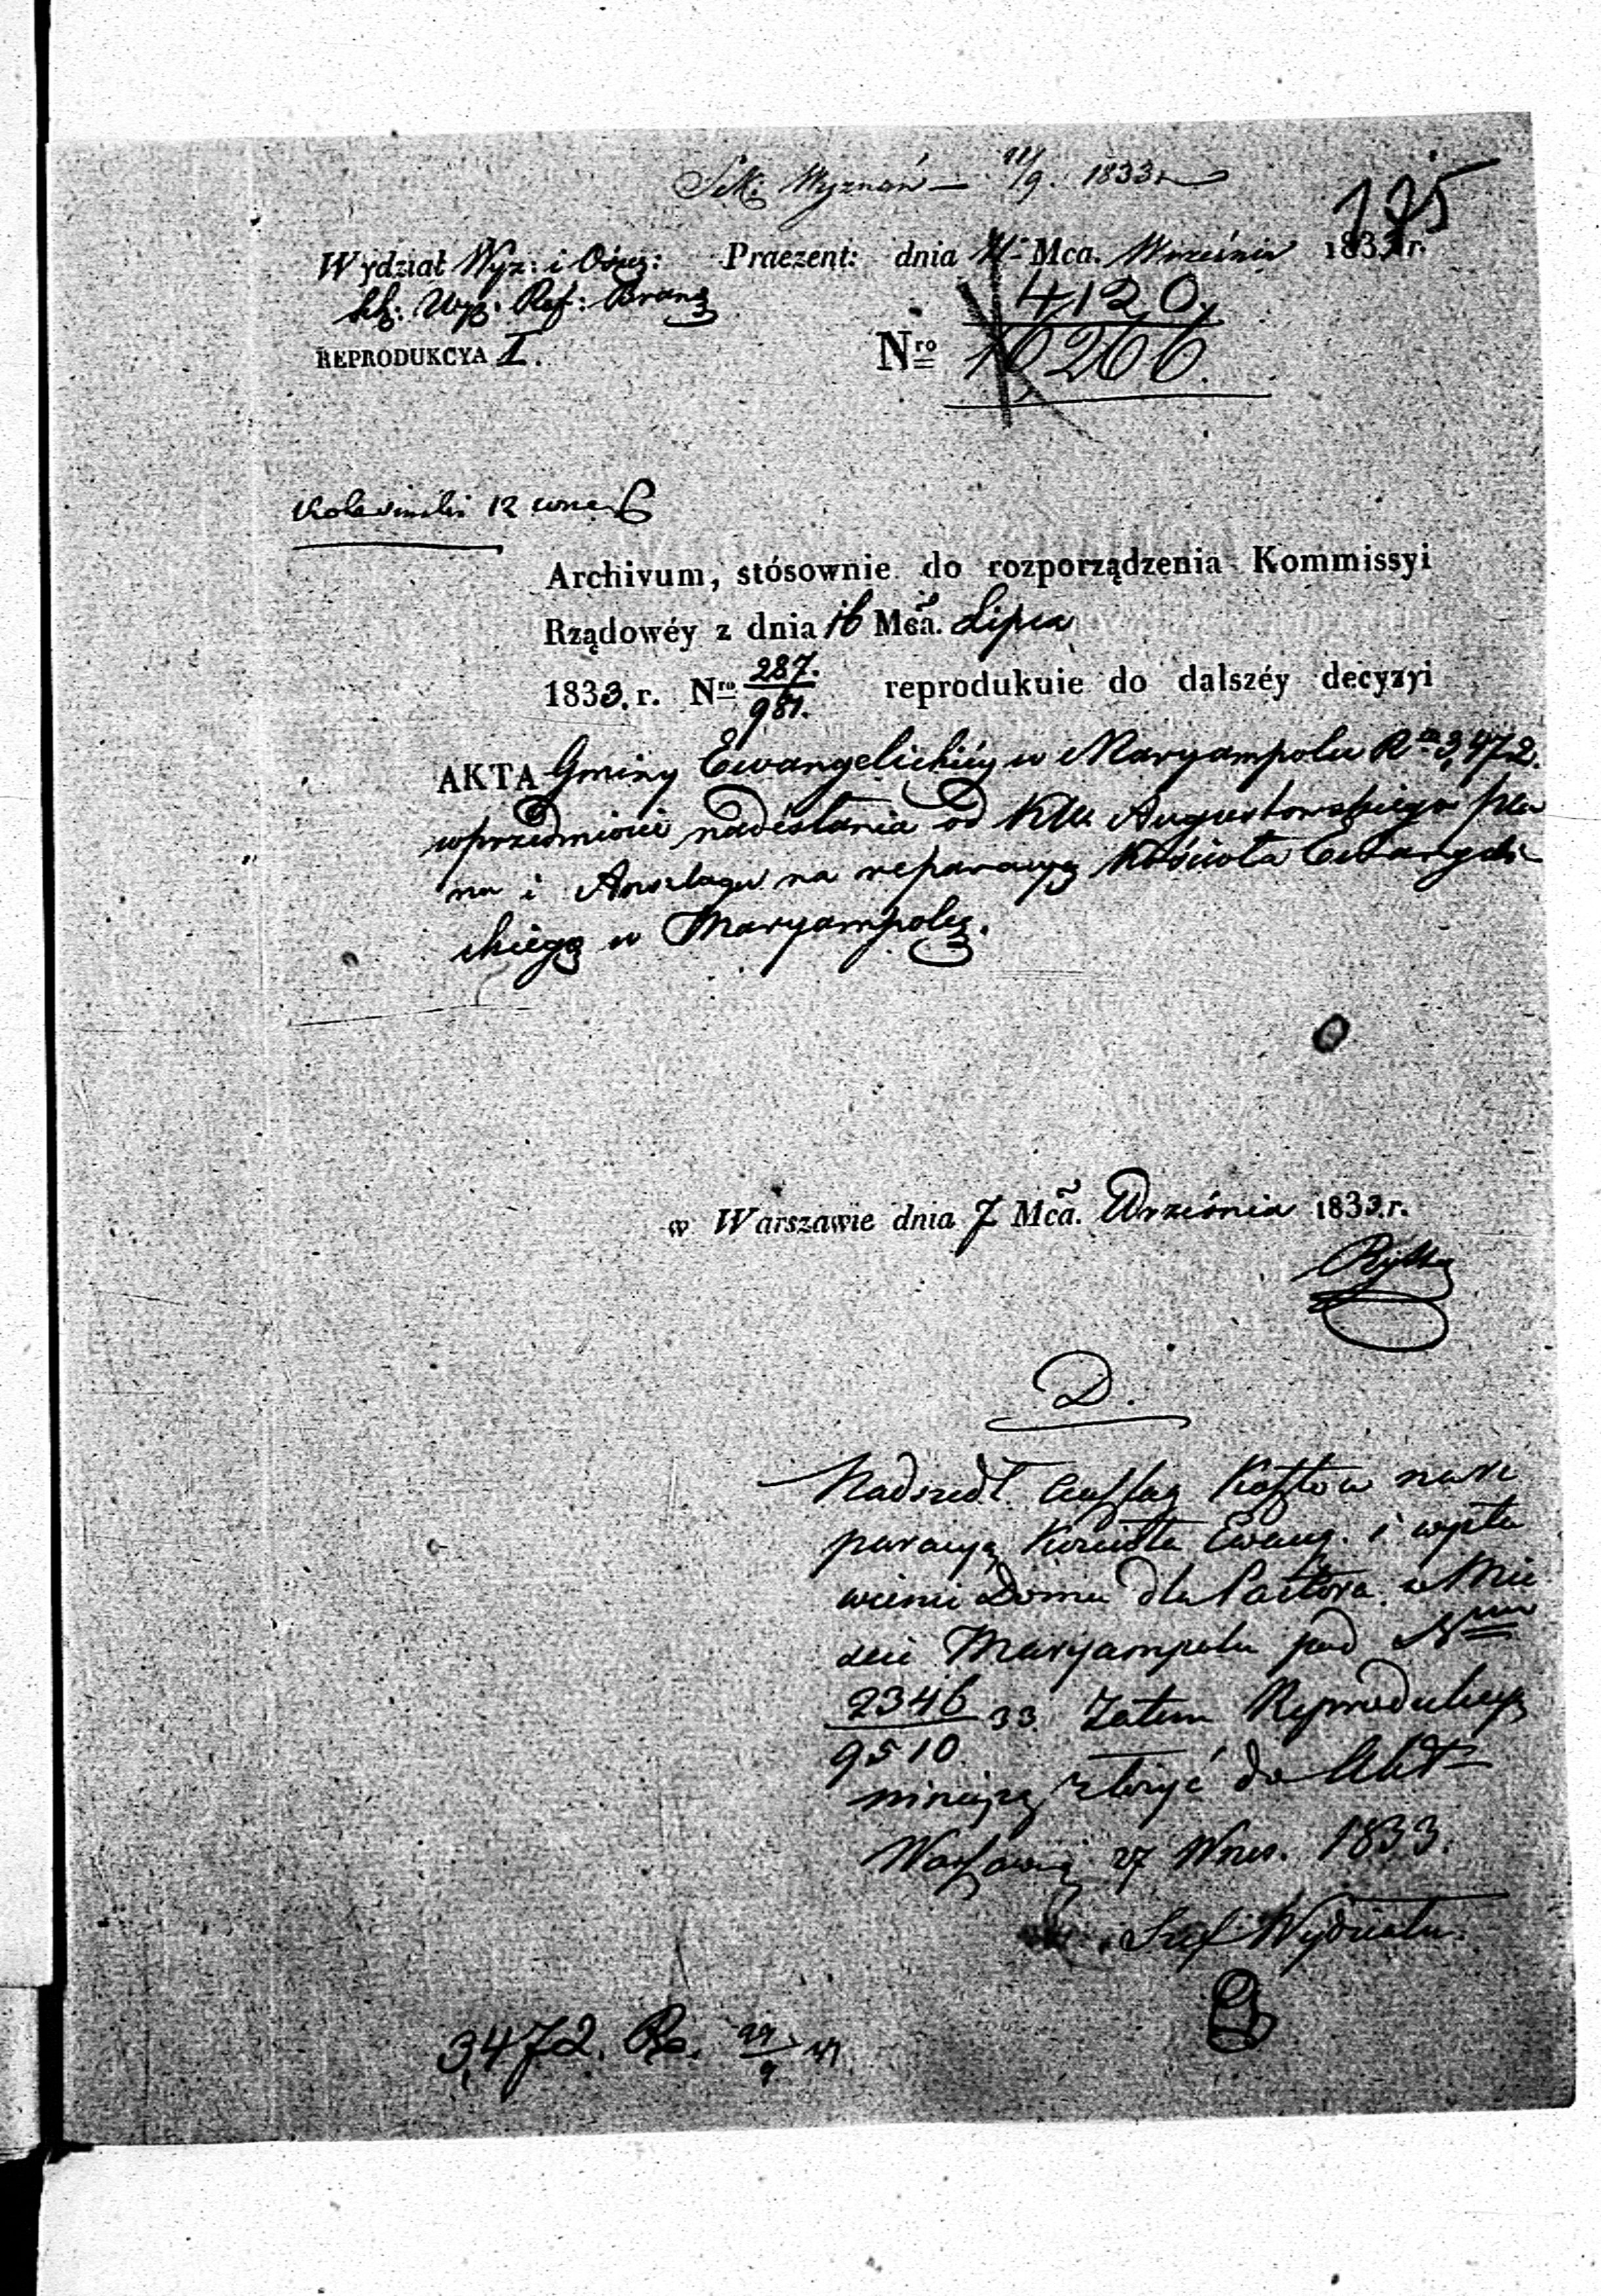 Sek: Wyznań — 11/9. 1833 r
175
Wydział Wyz: i Ośw: Praezent: dnia 11 Mca. Września 1833 r.
Sek: Wyz: Ref:
4120.
REPRODUKCYA I. Nro 10266.
12
Archivum, stósownie do rozporządzenia Kommissyi
Rządowéy z dnia 16 Mca. Lipca
1833. r. Nro 287./951. reprodukuie do dalszéy decyzyi
AKTA Gminy Ewangelickiéy w Maryampolu R 3,472.
w przedmiocie nadesłania od KW. Augustowskiego pla
nu i Anszlagu na reparacyą Kościoła Ewangeli
ckiego w Maryampolu.
w Warszawie dnia 7 Mca. Września 1833. r.
D.
Nadszedł Anszlag Kosztów na re
paracyą Kościoła Ewang. i wysta
wienie Domu dla Pastora w Mie
ście Maryampolu pod Nrem
2346/9510 33 Zatem Reprodukcyą
ninieyszą złożyć do Akt
Warszawa 27 Wrześ. 1833.
Szef Wydziału.
3,472. Re. 29/9